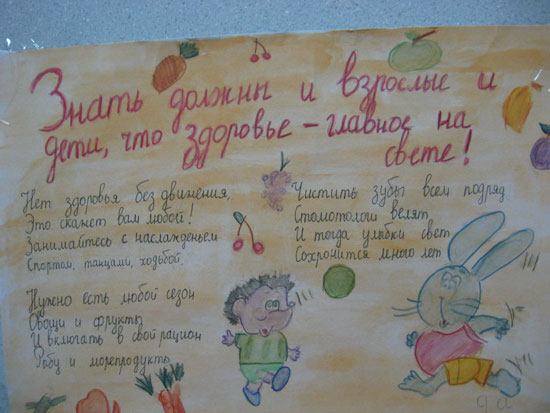 Знать должны и взрослые и
дети, что здоровье – главное на
свете!
Нет здоровья без движения,
Это скажет вам любой!
Занимайтесь с наслажденьем
Спортом, танцами, ходьбой.
Нужно есть любой сезон
Овощи и фрукты
И включать в свой рацион
Рыбу и морепродукты
Чистить зубы всем подряд
Стоматологи велят,
И тогда улыбки свет
Сохранится много лет